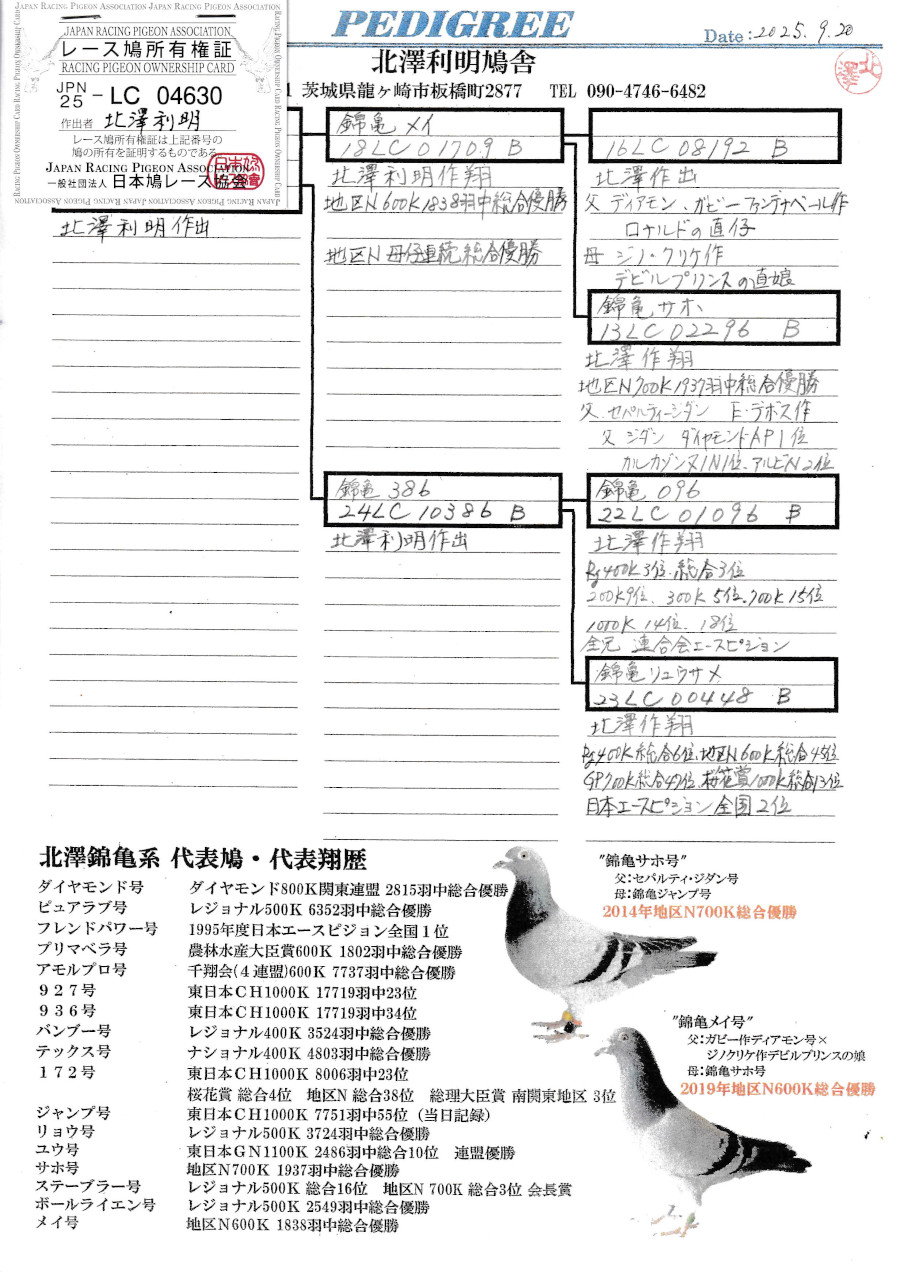 JAPAN RACING PIGEON ASSOCIATION
レース鳩所有権証
RACING PIGEON OWNERSHIP CARD
JPN 25 - LC 04630
作出者 北澤利明
レース鳩所有権証は上記番号の
鳩の所有を証明するものである
JAPAN RACING PIGEON ASSOCIATION
一般社団法人 日本鳩レース協会
PEDIGREE
Date: 2025. 9. 20
北澤利明鳩舎
北澤
1 茨城県龍ヶ崎市板橋町2877 TEL 090-4746-6482
北澤利明作出
錦亀 メイ
18LC 01709 B
北澤利明作翔
地区N 600K 1838羽中総合優勝
地区N 母仔連続総合優勝
錦亀 386
24LC 10386 B
北澤利明作出
16LC 08192 B
北澤作出
父 ディアモン、ガビーファンデナベール作
ロナルドの直仔
母 ジノ・クリケ作
デビルプリンスの直娘
錦亀 サホ
13LC 02296 B
北澤作翔
地区N700K1937羽中総合優勝
父、セパルティージダン E・デボス作
父 ジダン ダイヤモンドAP1位
カルカソンヌIN1位、アルビN2位
錦亀 096
22LC 01096 B
北澤作翔
Rg400K 3位、総合3位
200K9位、300K 5位、700K 15位
1000K 14位、18位
全兄 連合会エースピジョン
錦亀リュウサメ
23LC 00448 B
北澤作翔
Rg400K総合6位、地区N600K総合45位
GP700K総合49位、桜花賞1000K総合13位
日本エースピジョン全国2位
北澤錦亀系 代表鳩・代表翔歴
ダイヤモンド号 ダイヤモンド800K関東連盟 2815羽中総合優勝
ピュアラブ号 レジョナル500K 6352羽中総合優勝
フレンドパワー号 1995年度日本エースピジョン全国1位
プリマベラ号 農林水産大臣賞600K 1802羽中総合優勝
アモルプロ号 千翔会(4連盟)600K 7737羽中総合優勝
927号 東日本CH1000K 17719羽中23位
936号 東日本CH1000K 17719羽中34位
バンブー号 レジョナル400K 3524羽中総合優勝
テックス号 ナショナル400K 4803羽中総合優勝
172号 東日本CH1000K 8006羽中23位
桜花賞 総合4位 地区N 総合38位 総理大臣賞 南関東地区 3位
ジャンプ号 東日本CH1000K 7751羽中55位（当日記録）
リョウ号 レジョナル500K 3724羽中総合優勝
ユウ号 東日本GN1100K 2486羽中総合10位 連盟優勝
サホ号 地区N700K 1937羽中総合優勝
ステーブラー号 レジョナル500K 総合16位 地区N 700K 総合3位 会長賞
ボールライエン号 レジョナル500K 2549羽中総合優勝
メイ号 地区N600K 1838羽中総合優勝
"錦亀サホ号"
父：セパルティ・ジダン号
母：錦亀ジャンプ号
2014年地区N700K総合優勝
"錦亀メイ号"
父：ガビー作ディアモン号×
ジノクリケ作デビルプリンスの娘
母：錦亀サホ号
2019年地区N600K総合優勝